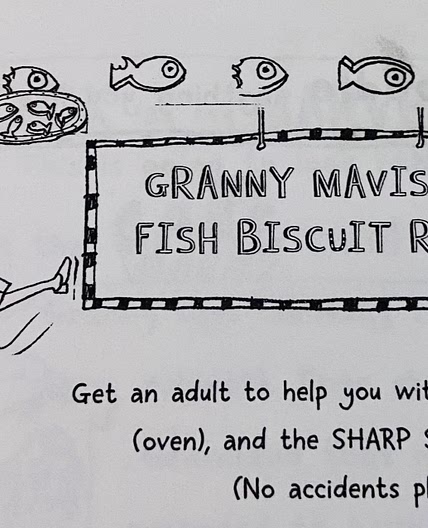 GRANNY MAVIS
FISH BISCUIT R
Get an adult to help you wit
(oven), and the SHARP S
(No accidents pl